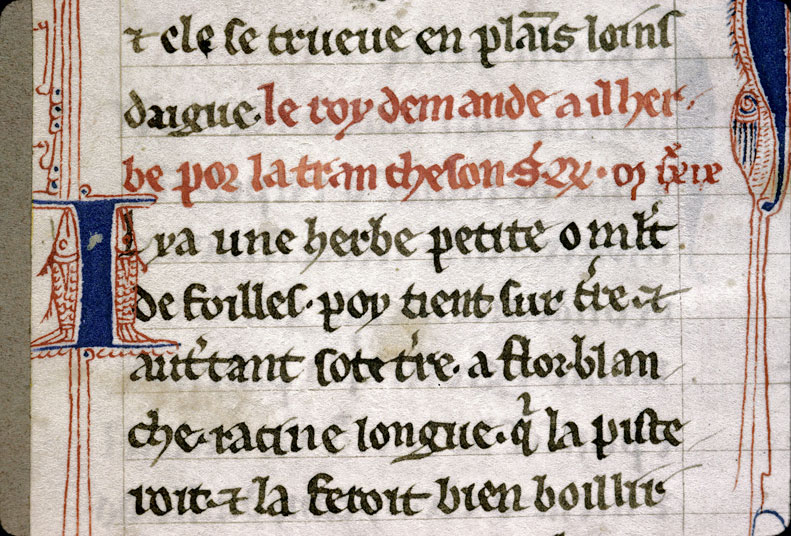 ⁊ ele se trueue en plāis loins
daigue. le roy demande a il her-
be por la tran cheson.
I l ya une herbe petite o ml't
de foilles. poy tient sur t're. ⁊
aut'tant sote t're. a flor blan
che. racine longue. q̉ la piste
roit. ⁊ la feroit bien boillir